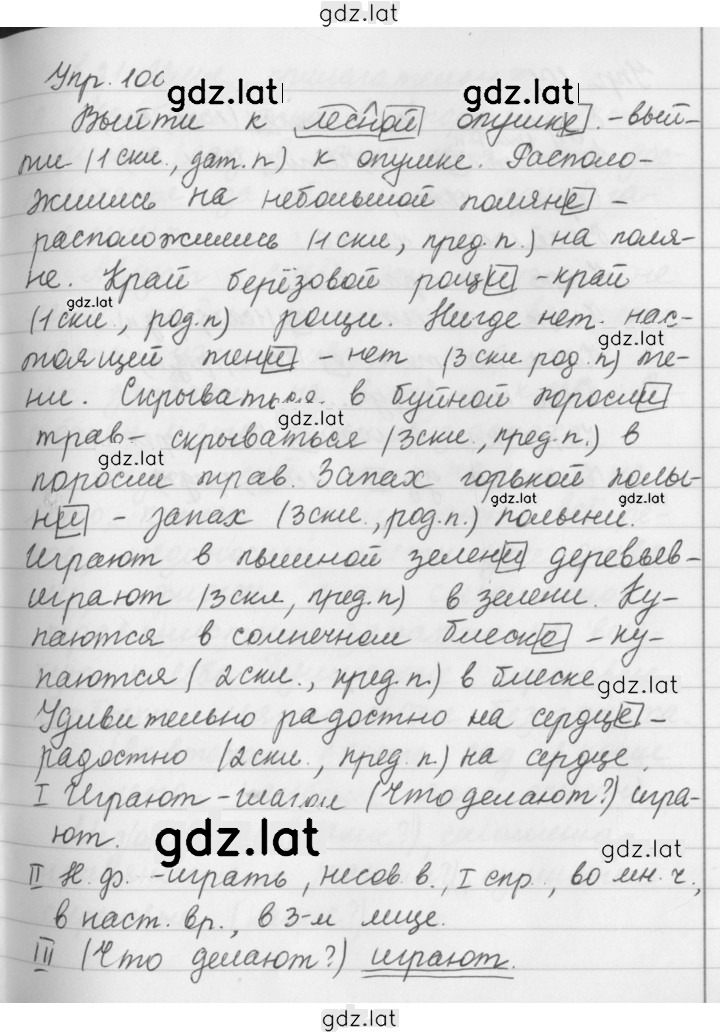 gdz.lat
Упр. 100
gdz.lat gdz.lat
Выйти к лесной опушке. - вый-
ти (1 скл., дат. п.) к опушке. Располо-
жились на небольшой поляне -
расположились (1 скл., пред. п.) на поля-
не. Край берёзовой рощи - край
gdz.lat
(1 скл., род. п) рощи. Нигде нет нас-
gdz.lat
тоящей тени - нет (3 скл род. п) те-
ни. Скрываться в буйной поросли
gdz.lat
трав - скрываться (3 скл., пред. п.) в
gdz.lat
поросли трав. Запах горькой полы-
gdz.lat gdz.lat
ни - запах (3 скл., род. п.) полыни.
Играют в пышной зелени деревьев -
играют (3 скл, пред. п) в зелени. Ку-
паются в солнечном блеске - ку-
паются (2 скл., пред. п.) в блеске
gdz.lat
Удивительно радостно на сердце -
радостно (2 скл., пред. п) на сердце.
I Играют - глагол (Что делают?) игра-
ют.
gdz.lat gdz.lat
II Н. ф. - играть, несов. в., I спр., во мн. ч.,
в наст. вр., в 3-м лице.
III (Что делают?) играют.
gdz.lat